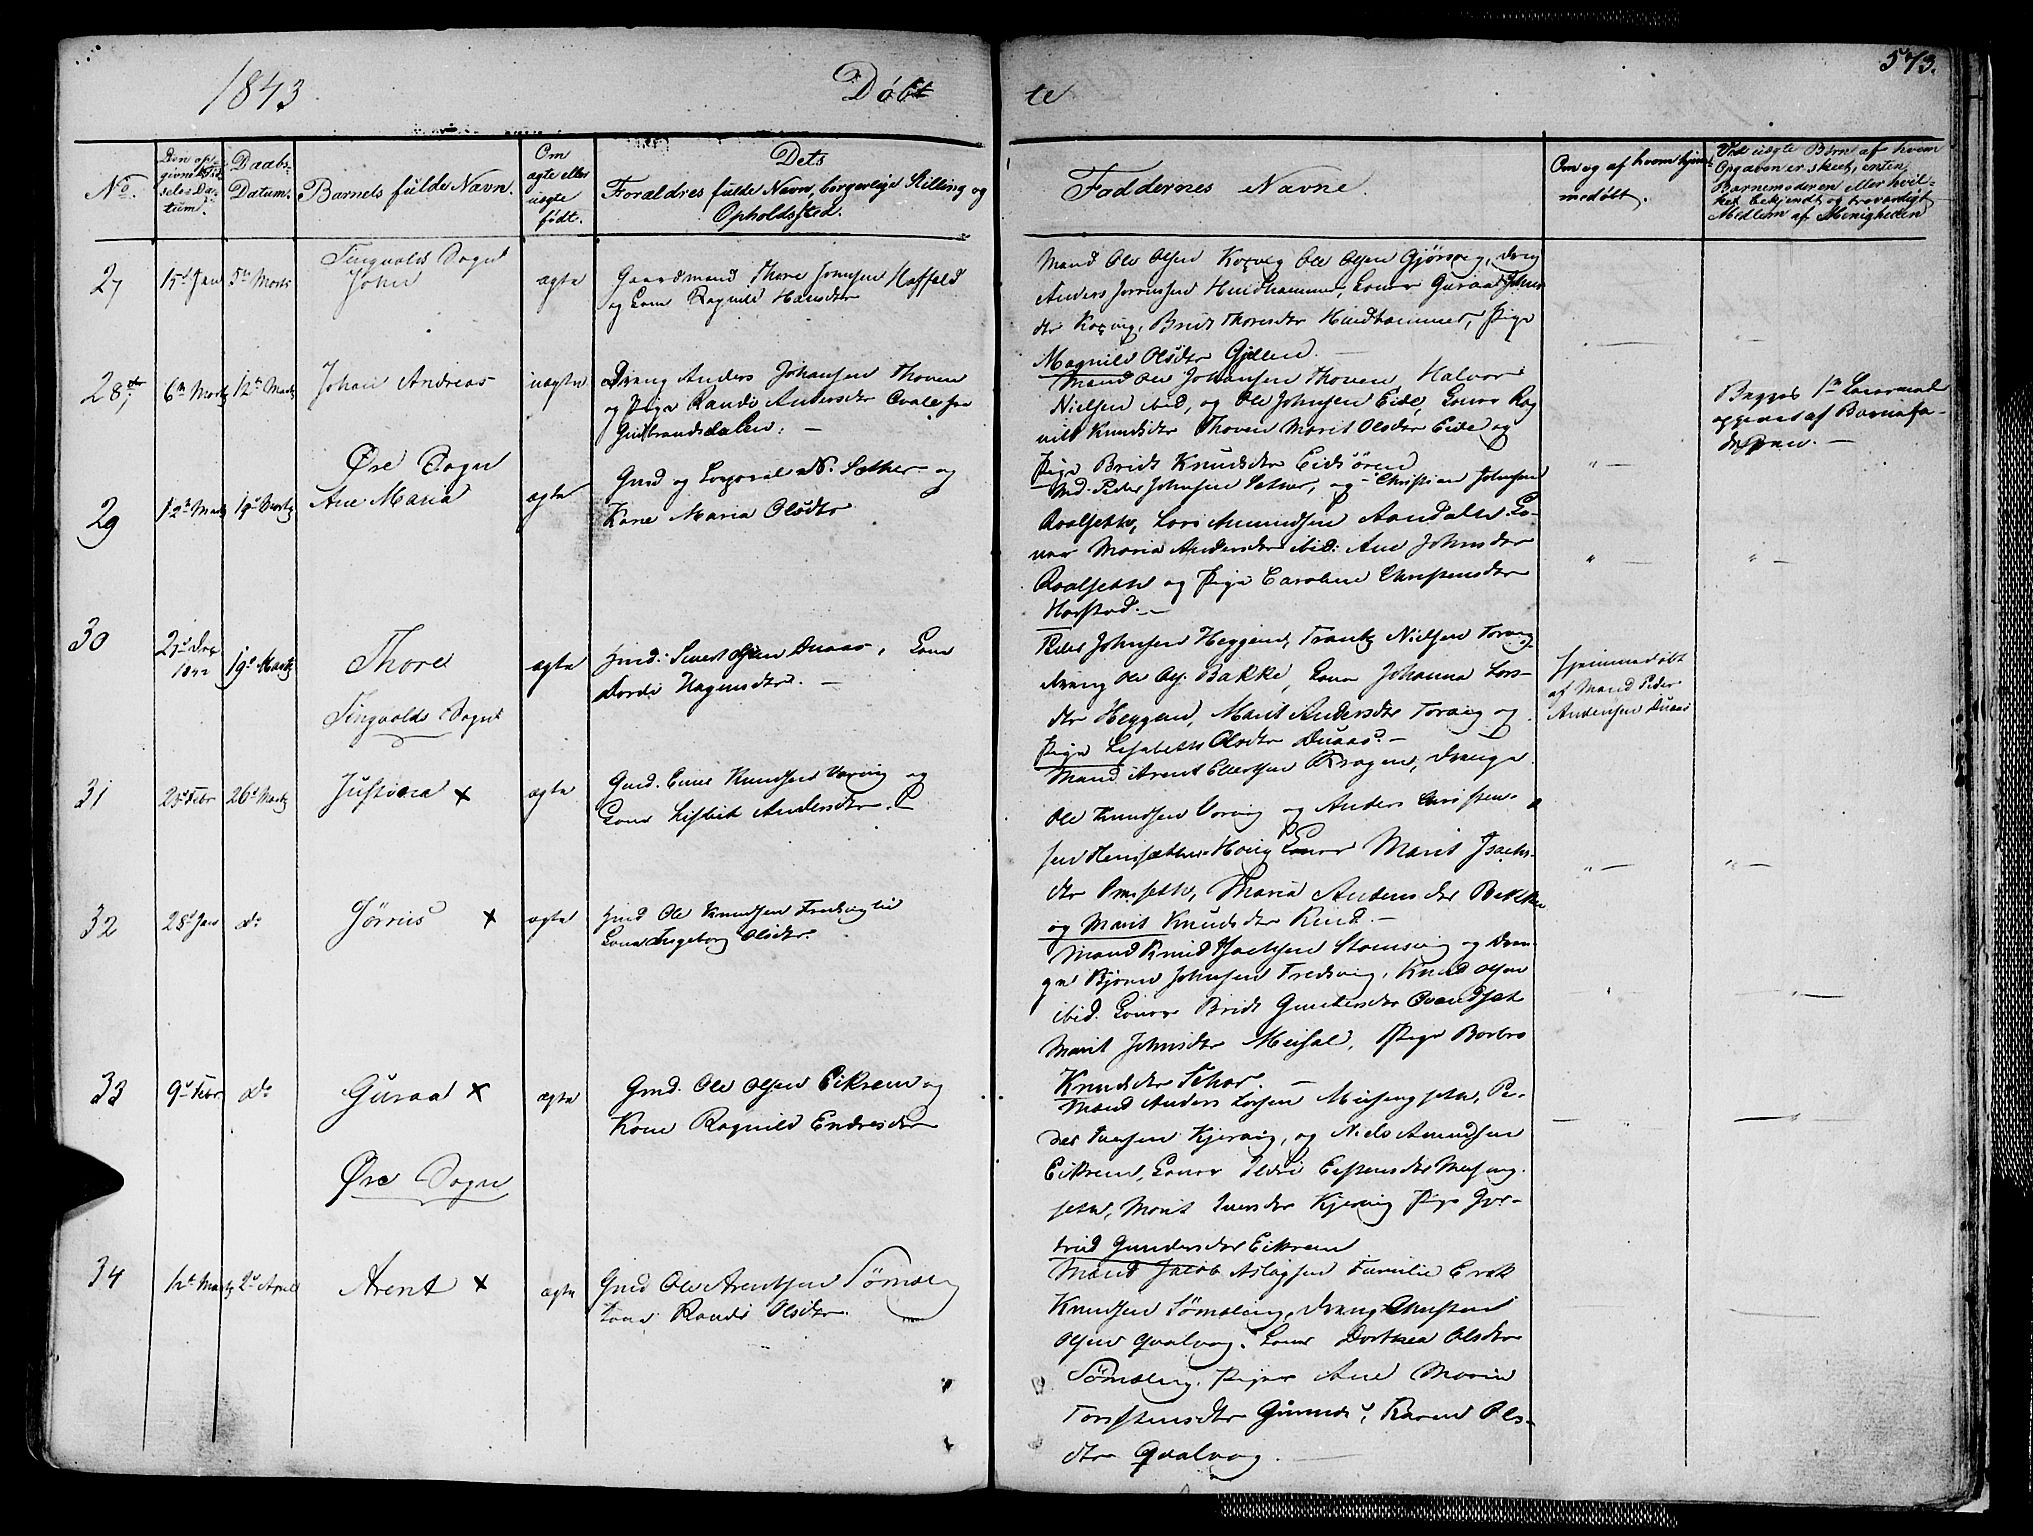 1843
Döbte
573.
No.
Den opgivne Födselsdatum.
Daabs-Datum.
Barnets fulde Navn.
Om ægte eller uægte födt.
Dets
Foraldres fulde Navn, borgerlige Stilling og
Opholdssted.
Faddernes Navne.
Om og af hvem hjemmedöbt.
Ved uægte Börn af hvem
Opgaven er skeet, enten
Barnemoderen eller hvil-
ket bekjendt og troværdigt
Medlem af Menigheden
Tingvolds Sogn
27 15d Jan 5te Marts John ægte
Gaardmand Thore Johnsen Hoffeld
og Kone Ragnild Hansdtr
Mand Ole Olsen Korsvig Ole Olsen Gjörsvig, Dreng
Anders Jörensen Hindhammer, Koner Guraa Johns
dtr Korsvig, Bridt Thoresdtr Hindhammer, Pige
Magnild Olsdtr Gjillen.
28de 6te Marts 12te Marts Johan Andreas uægte
Dreng Anders Johansen Thoven
og Pige Randi Andersdtr Qvale fra
Gudbrandsdalen.
Mand Ole Johansen Thoven, Halvor
Nielsen ibid, og Ole Johnsen Eide, Koner Rag
nild Knudsdtr Thoven Marit Olsdtr Eide og
Pige Bridt Knudsdtr Eidsören
Begges 1te Leiermaal
opgivet af Barnefa-
deren.
Öre Sogn
29 12te Marts 19d Marts Ane Maria ægte
Gmd og Corporal N. Sæther og
Kone Maria Olsdtr
Md. Peder Johnsen Sæther, og Christian Johnsen
Roalsetth, Lars Amundsen Aandalen Ko-
ner Maria Andersdtr ibid: Ane Johnsdtr
Roalsetth og Pige Caroline Christensdtr
Harstad.
30 1842 19d Marts Thore ægte
Hmd: Sivert Olsen Duaas, Kone
Dordi Hagensdtr.
Peder Johnsen Heggem, Frantz Nielsen Torvig,
Dreng Ole Ols. Bakke, Kone Johanna Lars-
dtr Heggem, Marit Andersdtr Torvig og
Pige Lisabeth Olsdtr Duaas.
Hjemmedöbt
af Mand Peder
Andersen Duaas
Tingvolds Sogn
31 25d Febr 26d Marts Justina x ægte
Gmd. Einer Knudsen Vorvig og
Kone Lisbet Andersdtr.
Mand Arent Ellertsen Kragen, Drenge
Ole Knudsen Vorvig og Anders Christen-
sen Koner Marit Isachs-
dtr Maria Andersdtr Bekken
og Marit Knudsdtr Rind.
32 28d Jan do Jörrus x ægte
Hmd Ole Knudsen Fredsviglie
Kone Ingeborg Olsdtr.
Mand Knud Isachsen Stomsvig og Dren
ge Björn Johnsen Fredsvig, Knud Olsen
ibid. Koner Bridt Gundersdtr Qvendset
Marit Johnsdtr Meisal, Pige Barbro
Knudsdtr
33 9d Febr do Guraa x ægte
Gmd. Ole Olsen Eikrem og
Kone Ragnild Endresdtr
Mand Anders Larsen Meisingsetn, Pe-
der Iversen Kjervig, og Niels Amundsen
Eikrem, Koner Ildri Espensdtr Meising-
setn, Marit Iversdtr Kjervig Pige Gjer-
trud Gundersdtr Eikrem
Öre Sogn
34 12te Marts 2d April Arent x ægte
Gmd Ole Arentsen Sömeling
Kone Randi Olsdtr.
Mand Jacob Aslagsen Familie Erik
Knudsen Sömeling, Dreng Christen
Olsen Qvalvog. Kone Dorthea Olsdtr
Sömeling. Piger Ane Maria
Torstensdtr Gimnes, Karen Ols-
dtr Qvalvog.